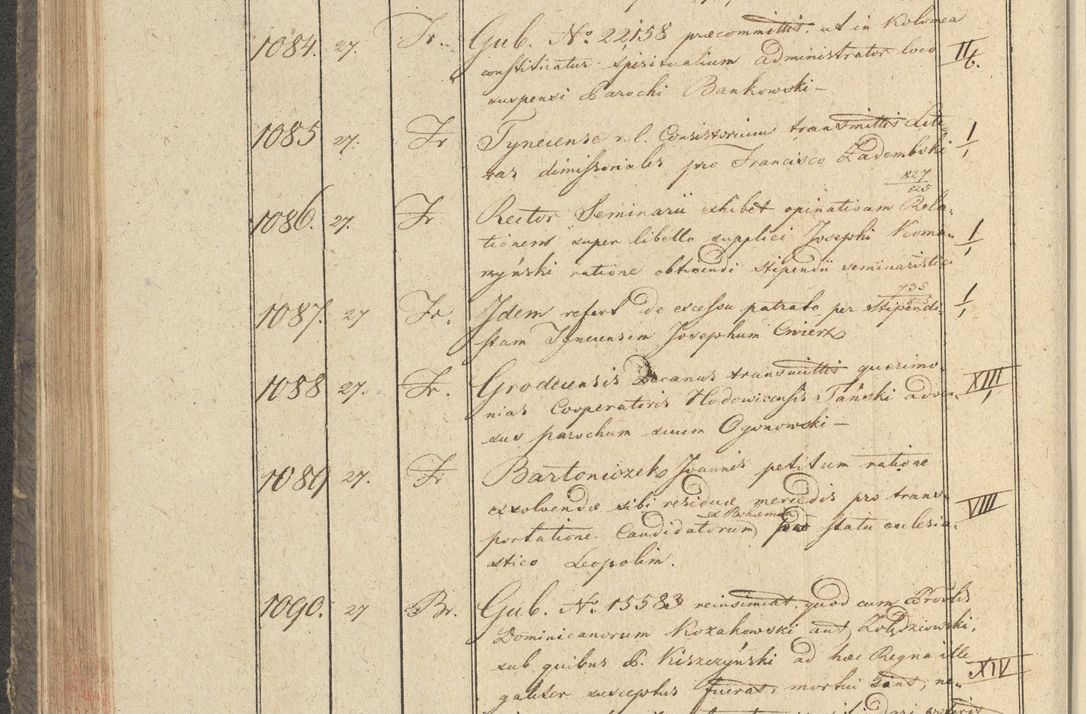 1084. 27. Fr. Gub. No 22158 praecommittit, ut in Kolomea
constituatur spiritualium Administrator loco II/6.
suspensi Parochi Bankowski –
1085 27. Fr Tyneciense r. l. Consistorium transmittit Lite-
ras dimissoriales pro Francisco Zadembski 1/1
827/825
1086. 27. Fr Rector Seminarii exhibet opinativam Rela-
tionem super libello supplici Josephi Koma- 1/1
rzyński ratione obtinendi stipendii seminaristici
735
1087. 27 Fr. Idem refert de excessu patrato per Stipendi- 1/1
stam Tyneciensem Josephum Cwierz
1088 27. Fr. Grodecensis Decanus transmittit querimo-
nias Cooperatoris Hodowicensis Tański adver- XIII
sus parochum suum Ogonowski –
1089 27. Fr Bartoniczek Joannis petitum ratione
exolvendae sibi residuae mercedis pro trans- VIII
ex Bohemia
portatione Candidatorum pro statu ecclesia-
stico Leopolim.
1090. 27 Br. Gub. No. 15583 reinsimitt. quod cum Provlis
Dominicanorum Kozakowski aut Zołędziowski,
sub quibus P. Kiszczyński ad haec Regna ille
galiter susceptus fuerat, mortui sint, ne- XIV